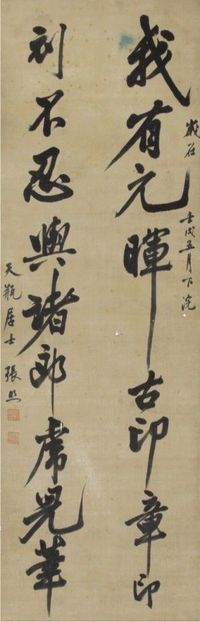 我有元暉古印章印
壬戌五月下浣
刓不忍與諸郎虎兒筆
天瓶居士張照